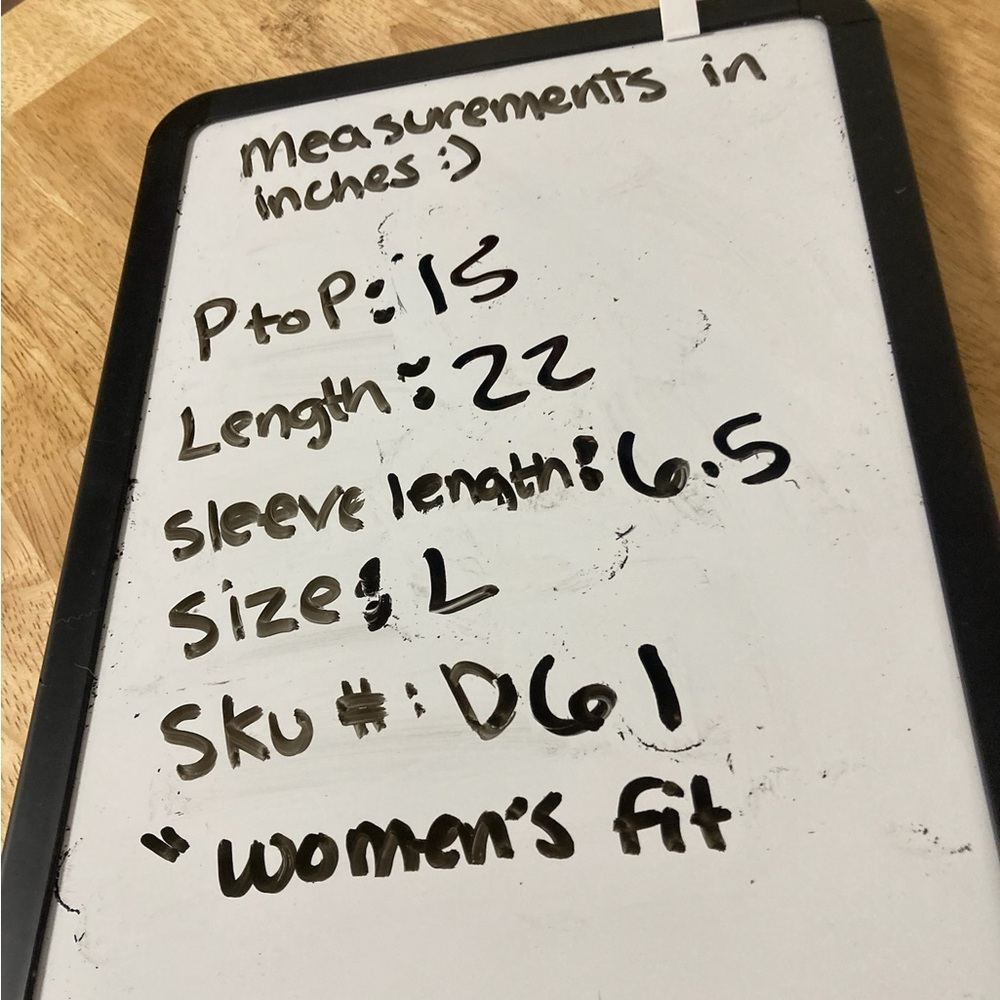 Measurements in
inches :)
P to P: 15
Length: 22
Sleeve length: 6.5
Size: L
Sku #: D61
"women's fit